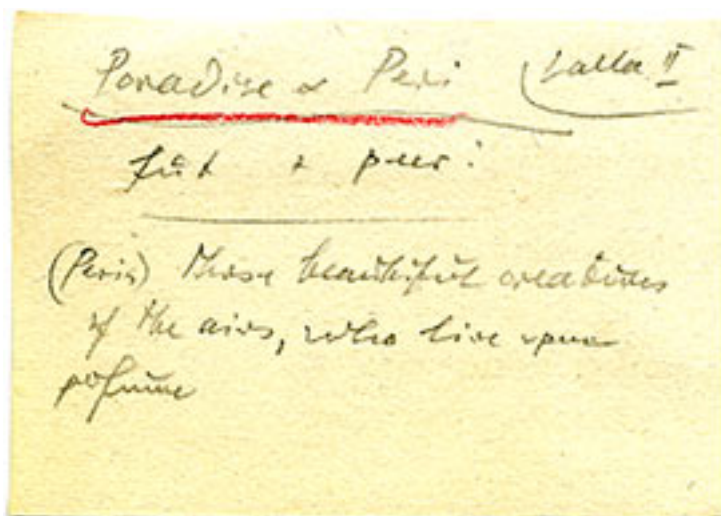 Paradise & Peri (Lalla II
(Peris) those beautiful creatures
of the airs, who live upon
perfume